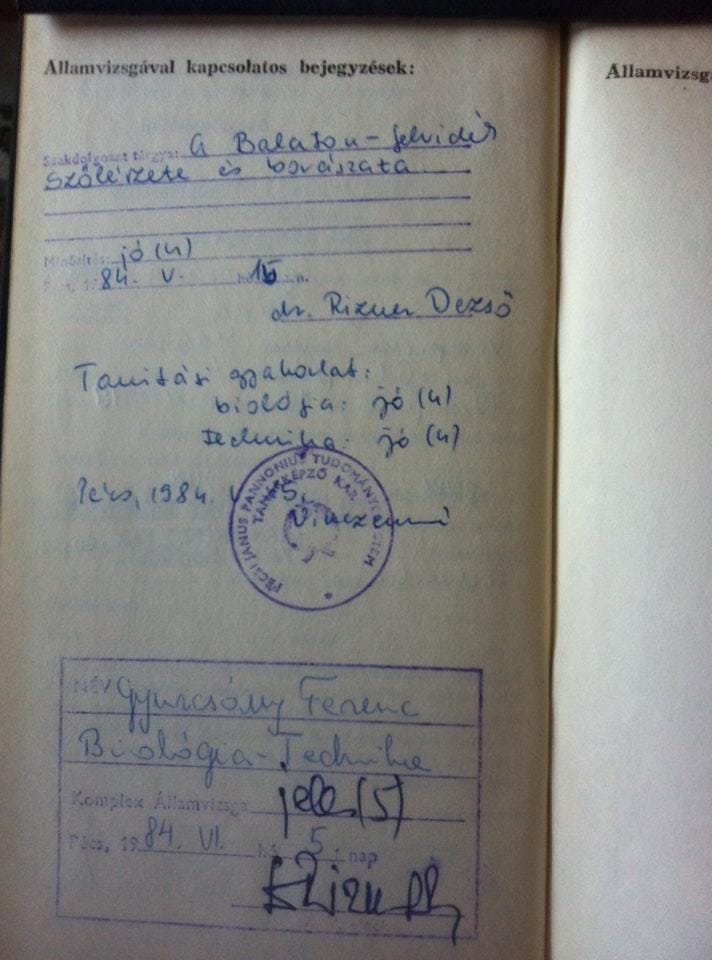 Államvizsgával kapcsolatos bejegyzések:
Szakdolgozat tárgya: A Balaton-felvidék
szőlészete és borászata
Minősítés: jó (4)
Pécs, 1984. V. hó 15 n.
dr. Rizner Dezső
Tanítási gyakorlat:
biológia: jó (4)
technika: jó (4)
Pécs, 1984. V 5.
PÉCSI JANUS PANNONIUS TUDOMÁNYEGYETEM
TANÁRKÉPZŐ KAR
NÉV Gyurcsány Ferenc
Biológia-Technika
Komplex Államvizsga jeles (5)
Pécs, 1984. VI. hó 5. nap
Államvizsg